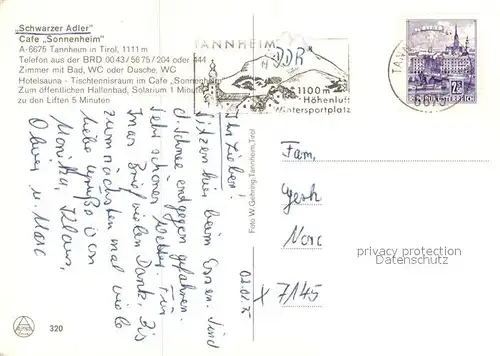 „Schwarzer Adler"
Cafe „Sonnenheim"
A-6675 Tannheim in Tirol, 1111 m
Telefon aus der BRD 0043/5675/204 oder 444
Zimmer mit Bad, WC oder Dusche, WC
Hotelsauna - Tischtennisraum im Cafe „Sonnenheim"
Zum öffentlichen Hallenbad, Solarium 1 Minute
zu den Liften 5 Minuten
TANNHEIM
DDR
1100 m
Höhenluft
Wintersportplatz
REPUBLIK ÖSTERREICH
Ihr Lieben!
Sitzen hier beim Essen. Sind
d. Schnee entgegen gefahren.
Sehr schönes Wetter. Für
Euren Brief vielen Dank. Bis
zum nächsten mal viele
liebe Grüße von
Monika, Klaus,
Oliver u. Marc
02.02.75
Foto W. Gehring, Tannheim, Tirol
Fam.
Gesk
Norc
x 7145
privacy protection
Datenschutz
320